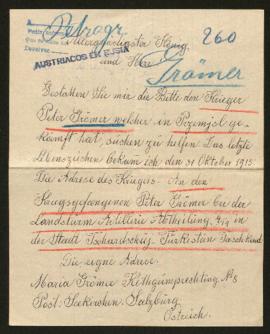 Petrogr
260
Allergnädigster König,
AUSTRIACOS EN RUSIA
und Herr
Grömer
Gestatten Sie mir die Bitte den Krieger
Peter Grömer welcher in Przemysl ge-
kämpft hat, suchen zu helfen. Das letzte
Lebenszeichen bekam ich den 31 Oktober 1915
Die Adresse des Kriegers: An den
Kriegsgefangenen Peter Grömer bei der
Landsturm Artillerie Abtheilung
in der Stadt Turkistan Taschkend
Die eigne Adresse.
Maria Grömer Nº 8
Post: Seekirchen Salzburg
Östreich.